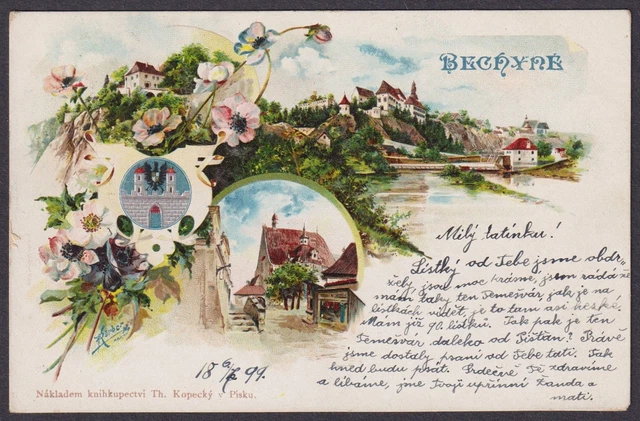 BECHYNĚ
Milý tatínku!
Lístky od Tebe jsme obdr-
žely, jsou moc krásné, jsem ráda že
mám taky ten Temešvár, jak je na
lístkách vidět, je to tam asi hezké.
Mám již 90. lístků. Tak pak je ten
Temešvár daleko od Píšťan? Právě
jsme dostaly psaní od Tebe tati. Tak
hned budu psát. Srdečně Tě zdravíme
a líbáme, jme Tvoji upřímní Fanda a
matí.
Nákladem knihkupectví Th. Kopecký v Písku.